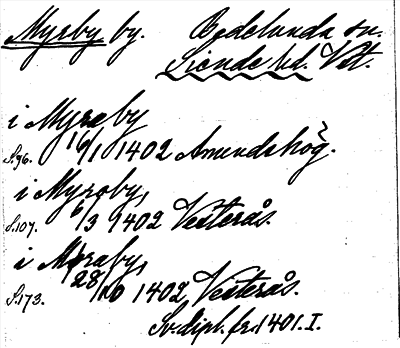 Myrby by. Badelunda sn.
Siende hd. Vst.
i Myreby
S.96. 16/1 1402 Amundshög.
i Myroby,
S.107. 6/3 1402 Vesterås.
i Myraby,
S.173. 28/10 1402, Vesterås.
Sv. dipl. fr. 1401. I.